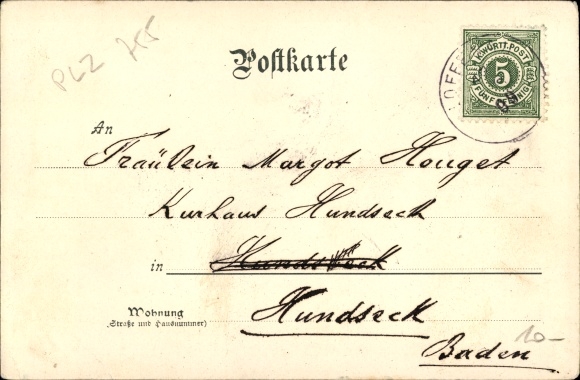 PLZ 755
Postkarte
K. WÜRTT. POST
5
FÜNF PFENNIG
99
An
Fräulein Margot Houget
Kurhaus Hundseck
in
Hundseck
Wohnung
(Straße und Hausnummer)
Baden
10-